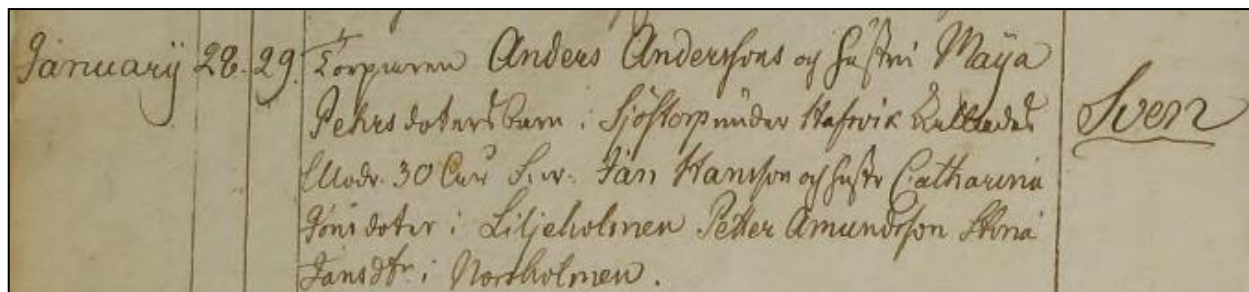 January 28. 29. Torparen Anders Anderssons och hustru Maÿa
Pehrsdoters barn i Sjöstorp under Hafvik kallades Sven
Modr. 30 S.w. Jan Hansson och hustr Catharina
Jönsdoter i Liljeholmen Petter Amundsson Stina
Jansdtr i Norrholmen.